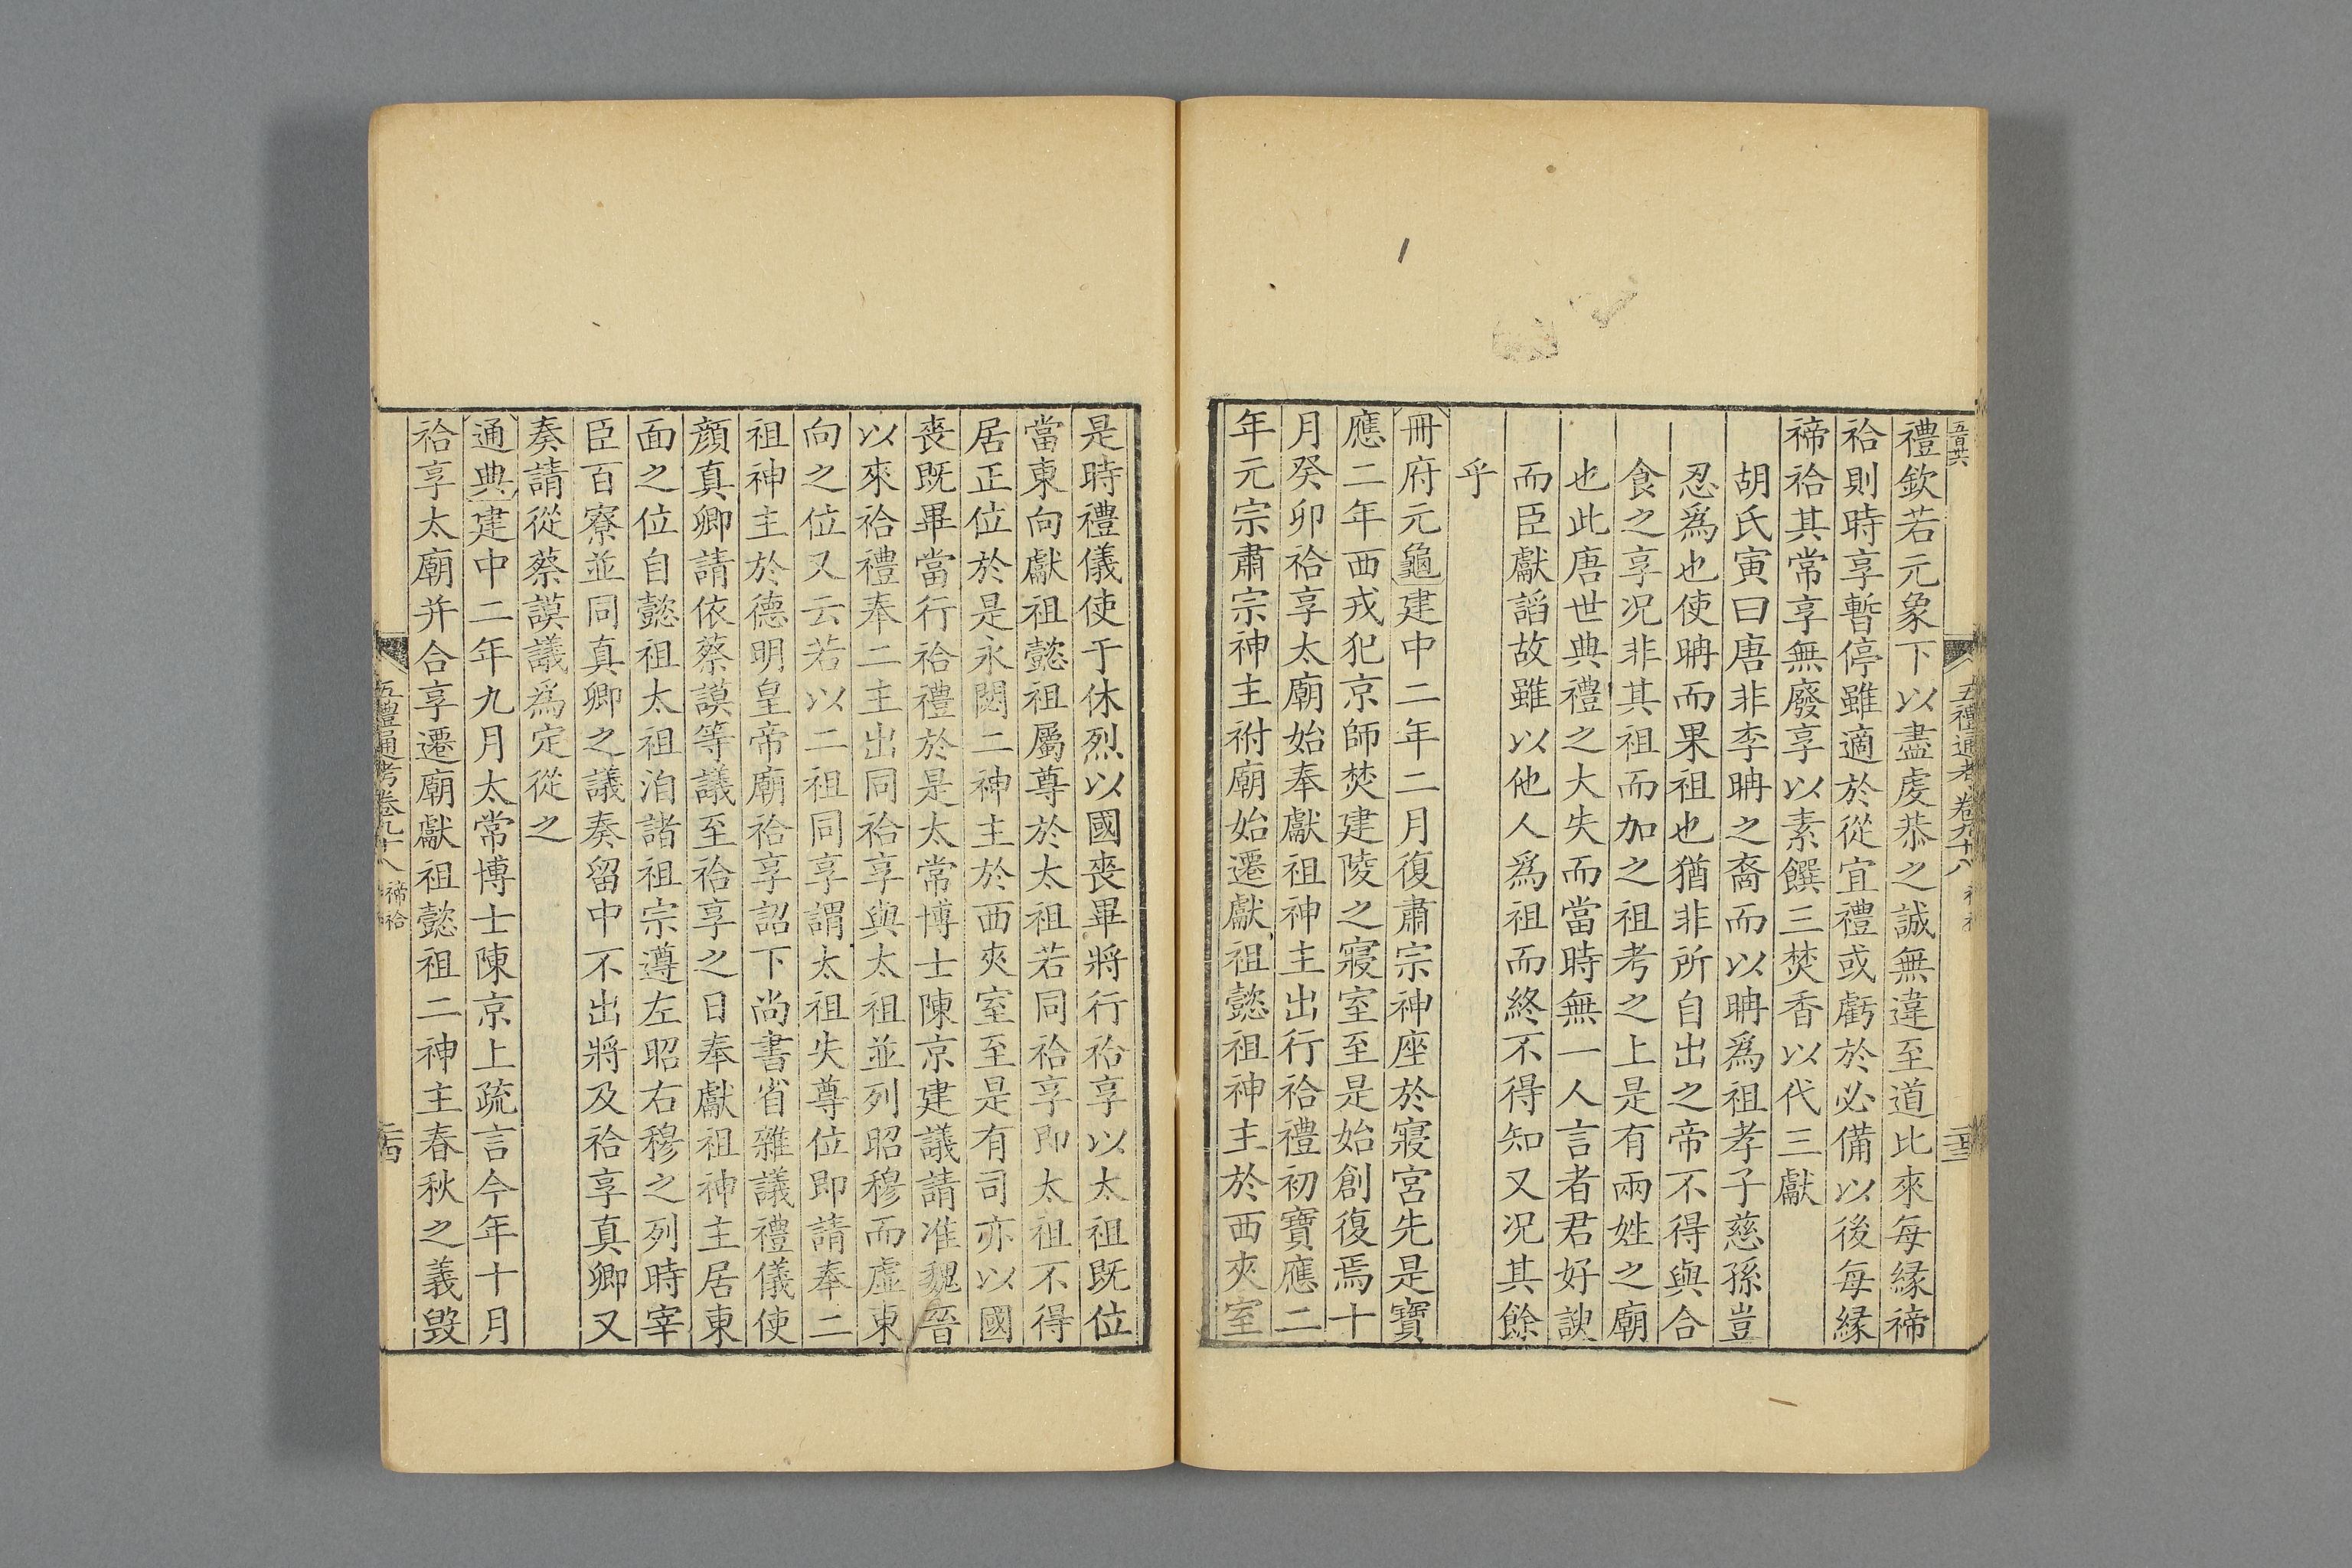 禮欽若元象下以盡虔恭之誠無違至道比來每緣禘
祫則時享暫停雖適於從宜禮或虧於必備以後每緣
禘祫其常享無廢享以素饌三焚香以代三獻
胡氏寅曰唐非李聃之裔而以聃爲祖孝子慈孫豈
忍爲也使聃而果祖也猶非所自出之帝不得與合
食之享况非其祖而加之祖考之上是有兩姓之廟
也此唐世典禮之大失而當時無一人言者君好諛
而臣獻謟故雖以他人爲祖而終不得知又况其餘
乎
冊府元龜建中二年二月復肅宗神座於寢宮先是寶
應二年西戎犯京師焚建陵之寢室至是始創復焉十
月癸卯祫享太廟始奉獻祖神主出行祫禮初寶應二
年元宗肅宗神主祔廟始遷獻祖懿祖神主於西夾室
是時禮儀使于休烈以國喪畢將行祫享以太祖既位
當東向獻祖懿祖屬尊於太祖若同祫享即太祖不得
居正位於是永閟二神主於西夾室至是有司亦以國
喪既畢當行祫禮於是太常博士陳京建議請准魏晉
以來祫禮奉二主出同祫享與太祖並列昭穆而虛東
向之位又云若以二祖同享謂太祖失尊位即請奉二
祖神主於德明皇帝廟祫享詔下尚書省雜議禮儀使
顔真卿請依蔡謨等議至祫享之日奉獻祖神主居東
面之位自懿祖太祖洎諸祖宗遵左昭右穆之列時宰
臣百寮並同真卿之議奏留中不出將及祫享真卿又
奏請從蔡謨議爲定從之
通典建中二年九月太常博士陳京上疏言今年十月
祫享太廟并合享遷廟獻祖懿祖二神主春秋之義毀
五禮通考卷九十八 禘祫 二十四